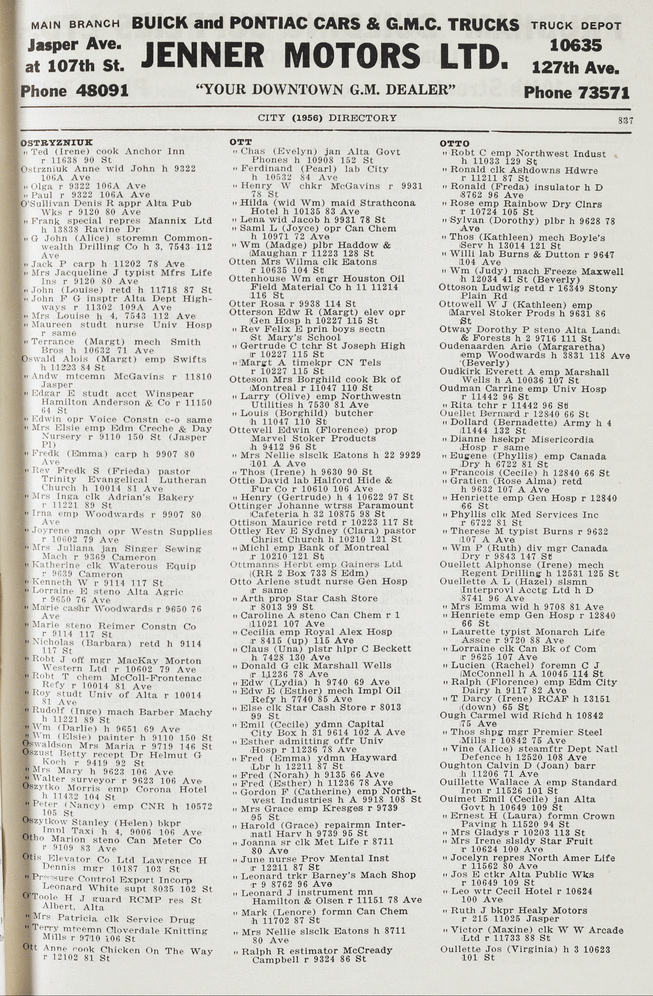 MAIN BRANCH BUICK and PONTIAC CARS & G.M.C. TRUCKS TRUCK DEPOT
Jasper Ave.
at 107th St.
Phone 48091
JENNER MOTORS LTD.
"YOUR DOWNTOWN G.M. DEALER"
10635
127th Ave.
Phone 73571
CITY (1956) DIRECTORY 837
OSTRYZNIUK
" Ted (Irene) cook Anchor Inn
r 11638 90 St
Ostrzniuk Anne wid John h 9322
106A Ave
" Olga r 9322 106A Ave
" Paul r 9322 106A Ave
O'Sullivan Denis R appr Alta Pub
Wks r 9120 80 Ave
" Frank special repres Mannix Ltd
h 13838 Ravine Dr
" G John (Alice) storemn Common-
wealth Drilling Co h 3, 7543 112
Ave
" Jack P carp h 11202 78 Ave
" Mrs Jacqueline J typist Mfrs Life
Ins r 9120 80 Ave
" John (Louise) retd h 11718 87 St
" John F G insptr Alta Dept High-
ways r 11302 109A Ave
" Mrs Louise h 4, 7543 112 Ave
" Maureen studt nurse Univ Hosp
r same
" Terrance (Margt) mech Smith
Bros h 10632 71 Ave
Oswald Alois (Margt) emp Swifts
h 11223 84 St
" Andw mtcemn McGavins r 11810
Jasper
" Edgar E studt acct Winspear
Hamilton Anderson & Co r 11150
64 St
" Edwin opr Voice Constn c-o same
" Mrs Elsie emp Edm Creche & Day
Nursery r 9110 150 St (Jasper
Pl)
" Fredk (Emma) carp h 9907 80
Ave
" Rev Fredk S (Frieda) pastor
Trinity Evangelical Lutheran
Church h 10014 81 Ave
" Mrs Inga clk Adrian's Bakery
r 11221 89 St
" Irna emp Woodwards r 9907 80
Ave
" Joyrene mach opr Westn Supplies
r 10602 79 Ave
" Mrs Juliana jan Singer Sewing
Mach r 9369 Cameron
" Katherine clk Waterous Equip
r 9639 Cameron
" Kenneth W r 9114 117 St
" Lorraine E steno Alta Agric
r 9650 76 Ave
" Marie cashr Woodwards r 9650 76
Ave
" Marie steno Reimer Constn Co
r 9114 117 St
" Nicholas (Barbara) retd h 9114
117 St
" Robt J off mgr MacKay Morton
Western Ltd r 10602 79 Ave
" Robt T chem McColl-Frontenac
Refy r 10014 81 Ave
" Roy studt Univ of Alta r 10014
81 Ave
" Rudolf (Inge) mach Barber Machy
h 11221 89 St
" Wm (Darlie) h 9651 69 Ave
" Wm (Elsie) painter h 9110 150 St
Oswaldson Mrs Maria r 9719 146 St
Oszust Betty recept Dr Helmut G
Koch r 9419 92 St
" Mrs Mary h 9623 106 Ave
" Walter surveyor r 9623 106 Ave
Oszytko Morris emp Corona Hotel
h 11432 104 St
" Peter (Nancy) emp CNR h 10572
105 St
Oszytkow Stanley (Helen) bkpr
Impl Taxi h 4, 9006 106 Ave
Otho Marion steno Can Meter Co
r 9109 83 Ave
Otis Elevator Co Ltd Lawrence H
Dennis mgr 10187 103 St
" Pressure Control Export Incorp
Leonard White supt 8035 102 St
O'Toole H J guard RCMP res St
Albert, Alta
" Mrs Patricia clk Service Drug
" Terry mtcemn Cloverdale Knitting
Mills r 9710 106 St
Ott Anne cook Chicken On The Way
r 12102 81 St
OTT
" Chas (Evelyn) jan Alta Govt
Phones h 10908 152 St
" Ferdinand (Pearl) lab City
h 10532 84 Ave
" Henry W chkr McGavins r 9931
78 St
" Hilda (wid Wm) maid Strathcona
Hotel h 10135 83 Ave
" Lena wid Jacob h 9931 78 St
" Saml L (Joyce) opr Can Chem
h 10971 72 Ave
" Wm (Madge) plbr Haddow &
Maughan r 11223 128 St
Otten Mrs Wilma clk Eatons
r 10635 104 St
Ottenhouse Wm engr Houston Oil
Field Material Co h 11 11214
116 St
Otter Rosa r 9938 114 St
Otterson Edw R (Margt) elev opr
Gen Hosp h 10227 115 St
" Rev Felix E prin boys sectn
St Mary's School
" Gertrude C tchr St Joseph High
r 10227 115 St
" Margt A timekpr CN Tels
r 10227 115 St
Otteson Mrs Borghild cook Bk of
Montreal r 11047 110 St
" Larry (Olive) emp Northwestn
Utilities h 7530 81 Ave
" Louis (Borghild) butcher
h 11047 110 St
Ottewell Edwin (Florence) prop
Marvel Stoker Products
h 9412 96 St
" Mrs Nellie slsclk Eatons h 22 9929
101 A Ave
" Thos (Irene) h 9630 90 St
Ottie David lab Halford Hide &
Fur Co r 10610 106 Ave
" Henry (Gertrude) h 4 10622 97 St
Ottinger Johanne wtrss Paramount
Cafeteria h 32 10875 98 St
Ottison Maurice retd r 10223 117 St
Ottley Rev E Sydney (Clara) pastor
Christ Church h 10210 121 St
" Michl emp Bank of Montreal
r 10210 121 St
Ottmanns Herbt emp Gainers Ltd
(RR 2 Box 733 S Edm)
Otto Arlene studt nurse Gen Hosp
r same
" Arth prop Star Cash Store
r 8013 99 St
" Caroline A steno Can Chem r 1
11021 107 Ave
" Cecilia emp Royal Alex Hosp
r 8415 (up) 115 Ave
" Claus (Una) plstr hlpr C Beckett
h 7428 130 Ave
" Donald G clk Marshall Wells
r 11236 78 Ave
" Edw (Lydia) h 9740 69 Ave
" Edw E (Esther) mech Impl Oil
Refy h 7740 85 Ave
" Else clk Star Cash Store r 8013
99 St
" Emil (Cecile) ydmn Capital
City Box h 31 9614 102 A Ave
" Esther admitting offr Univ
Hosp r 11236 78 Ave
" Fred (Emma) ydmn Hayward
Lbr h 12211 87 St
" Fred (Norah) h 9135 66 Ave
" Fred (Esther) h 11236 78 Ave
" Gordon F (Catherine) emp North-
west Industries h A 9918 108 St
" Mrs Grace emp Kresges r 9739
95 St
" Harold (Grace) repairmn Inter-
natl Harv h 9739 95 St
" Joanna sr clk Met Life r 8711
80 Ave
" June nurse Prov Mental Inst
r 12211 87 St
" Leonard trkr Barney's Mach Shop
r 9 8762 96 Ave
" Leonard J instrument mn
Hamilton & Olsen r 11151 78 Ave
" Mark (Lenore) formn Can Chem
h 11702 87 St
" Mrs Nellie slsclk Eatons h 8711
80 Ave
" Ralph R estimator McCready
Campbell r 9324 86 St
OTTO
" Robt C emp Northwest Indust
h 11033 129 St
" Ronald clk Ashdowns Hdwre
r 11211 87 St
" Ronald (Freda) insulator h D
8762 96 Ave
" Rose emp Rainbow Dry Clnrs
r 10724 105 St
" Sylvan (Dorothy) plbr h 9628 78
Ave
" Thos (Kathleen) mech Boyle's
Serv h 13014 121 St
" Willi lab Burns & Dutton r 9647
104 Ave
" Wm (Judy) mach Freeze Maxwell
h 12034 41 St (Beverly)
Ottoson Ludwig retd r 16349 Stony
Plain Rd
Ottowell W J (Kathleen) emp
Marvel Stoker Prods h 9631 86
St
Otway Dorothy P steno Alta Lands
& Forests h 2 9716 111 St
Oudenaarden Arie (Margaretha)
emp Woodwards h 3831 118 Ave
(Beverly)
Oudkirk Everett A emp Marshall
Wells h A 10036 107 St
Oudman Carrine emp Univ Hosp
r 11442 96 St
" Rita tchr r 11442 96 St
Ouellet Bernard r 12840 66 St
" Dollard (Bernadette) Army h 4
11444 132 St
" Dianne hsekpr Misericordia
Hosp r same
" Eugene (Phyllis) emp Canada
Dry h 6722 81 St
" Francois (Cecile) h 12840 66 St
" Gratien (Rose Alma) retd
h 9632 107 A Ave
" Henriette emp Gen Hosp r 12840
66 St
" Phyllis clk Med Services Inc
r 6722 81 St
" Therese M typist Burns r 9632
107 A Ave
" Wm P (Ruth) div mgr Canada
Dry r 9843 147 St
Ouellett Alphonse (Irene) mech
Regent Drilling h 12531 125 St
Ouellette A L (Hazel) slsmn
Interprovl Acctg Ltd h D
8741 96 Ave
" Mrs Emma wid h 9708 81 Ave
" Henriete emp Gen Hosp r 12840
66 St
" Laurette typist Monarch Life
Assce r 9720 88 Ave
" Lorraine clk Can Bk of Com
r 9625 107 Ave
" Lucien (Rachel) foremn C J
McConnell h A 10045 114 St
" Ralph (Florence) emp Edm City
Dairy h 9117 82 Ave
" T Darcy (Irene) RCAF h 13151
(down) 65 St
Ough Carmel wid Richd h 10842
75 Ave
" Thos shpg mgr Premier Steel
Mills r 10842 75 Ave
" Vine (Alice) steamftr Dept Natl
Defence h 12520 108 Ave
Oughton Calvin D (Joan) barr
h 11206 71 Ave
Ouillette Wallace A emp Standard
Iron r 11526 101 St
Ouimet Emil (Cecile) jan Alta
Govt h 10649 109 St
" Ernest H (Laura) formn Crown
Paving h 11520 94 St
" Mrs Gladys r 10203 113 St
" Mrs Irene slsldy Star Fruit
r 10624 100 Ave
" Jocelyn repres North Amer Life
r 11562 80 Ave
" Jos E ctkr Alta Public Wks
r 10649 109 St
" Leo wtr Cecil Hotel r 10624
100 Ave
" Ruth J bkpr Healy Motors
r 215 11025 Jasper
" Victor (Maxine) clk W W Arcade
Ltd r 11733 88 St
Oullette Jos (Virginia) h 3 10623
101 St